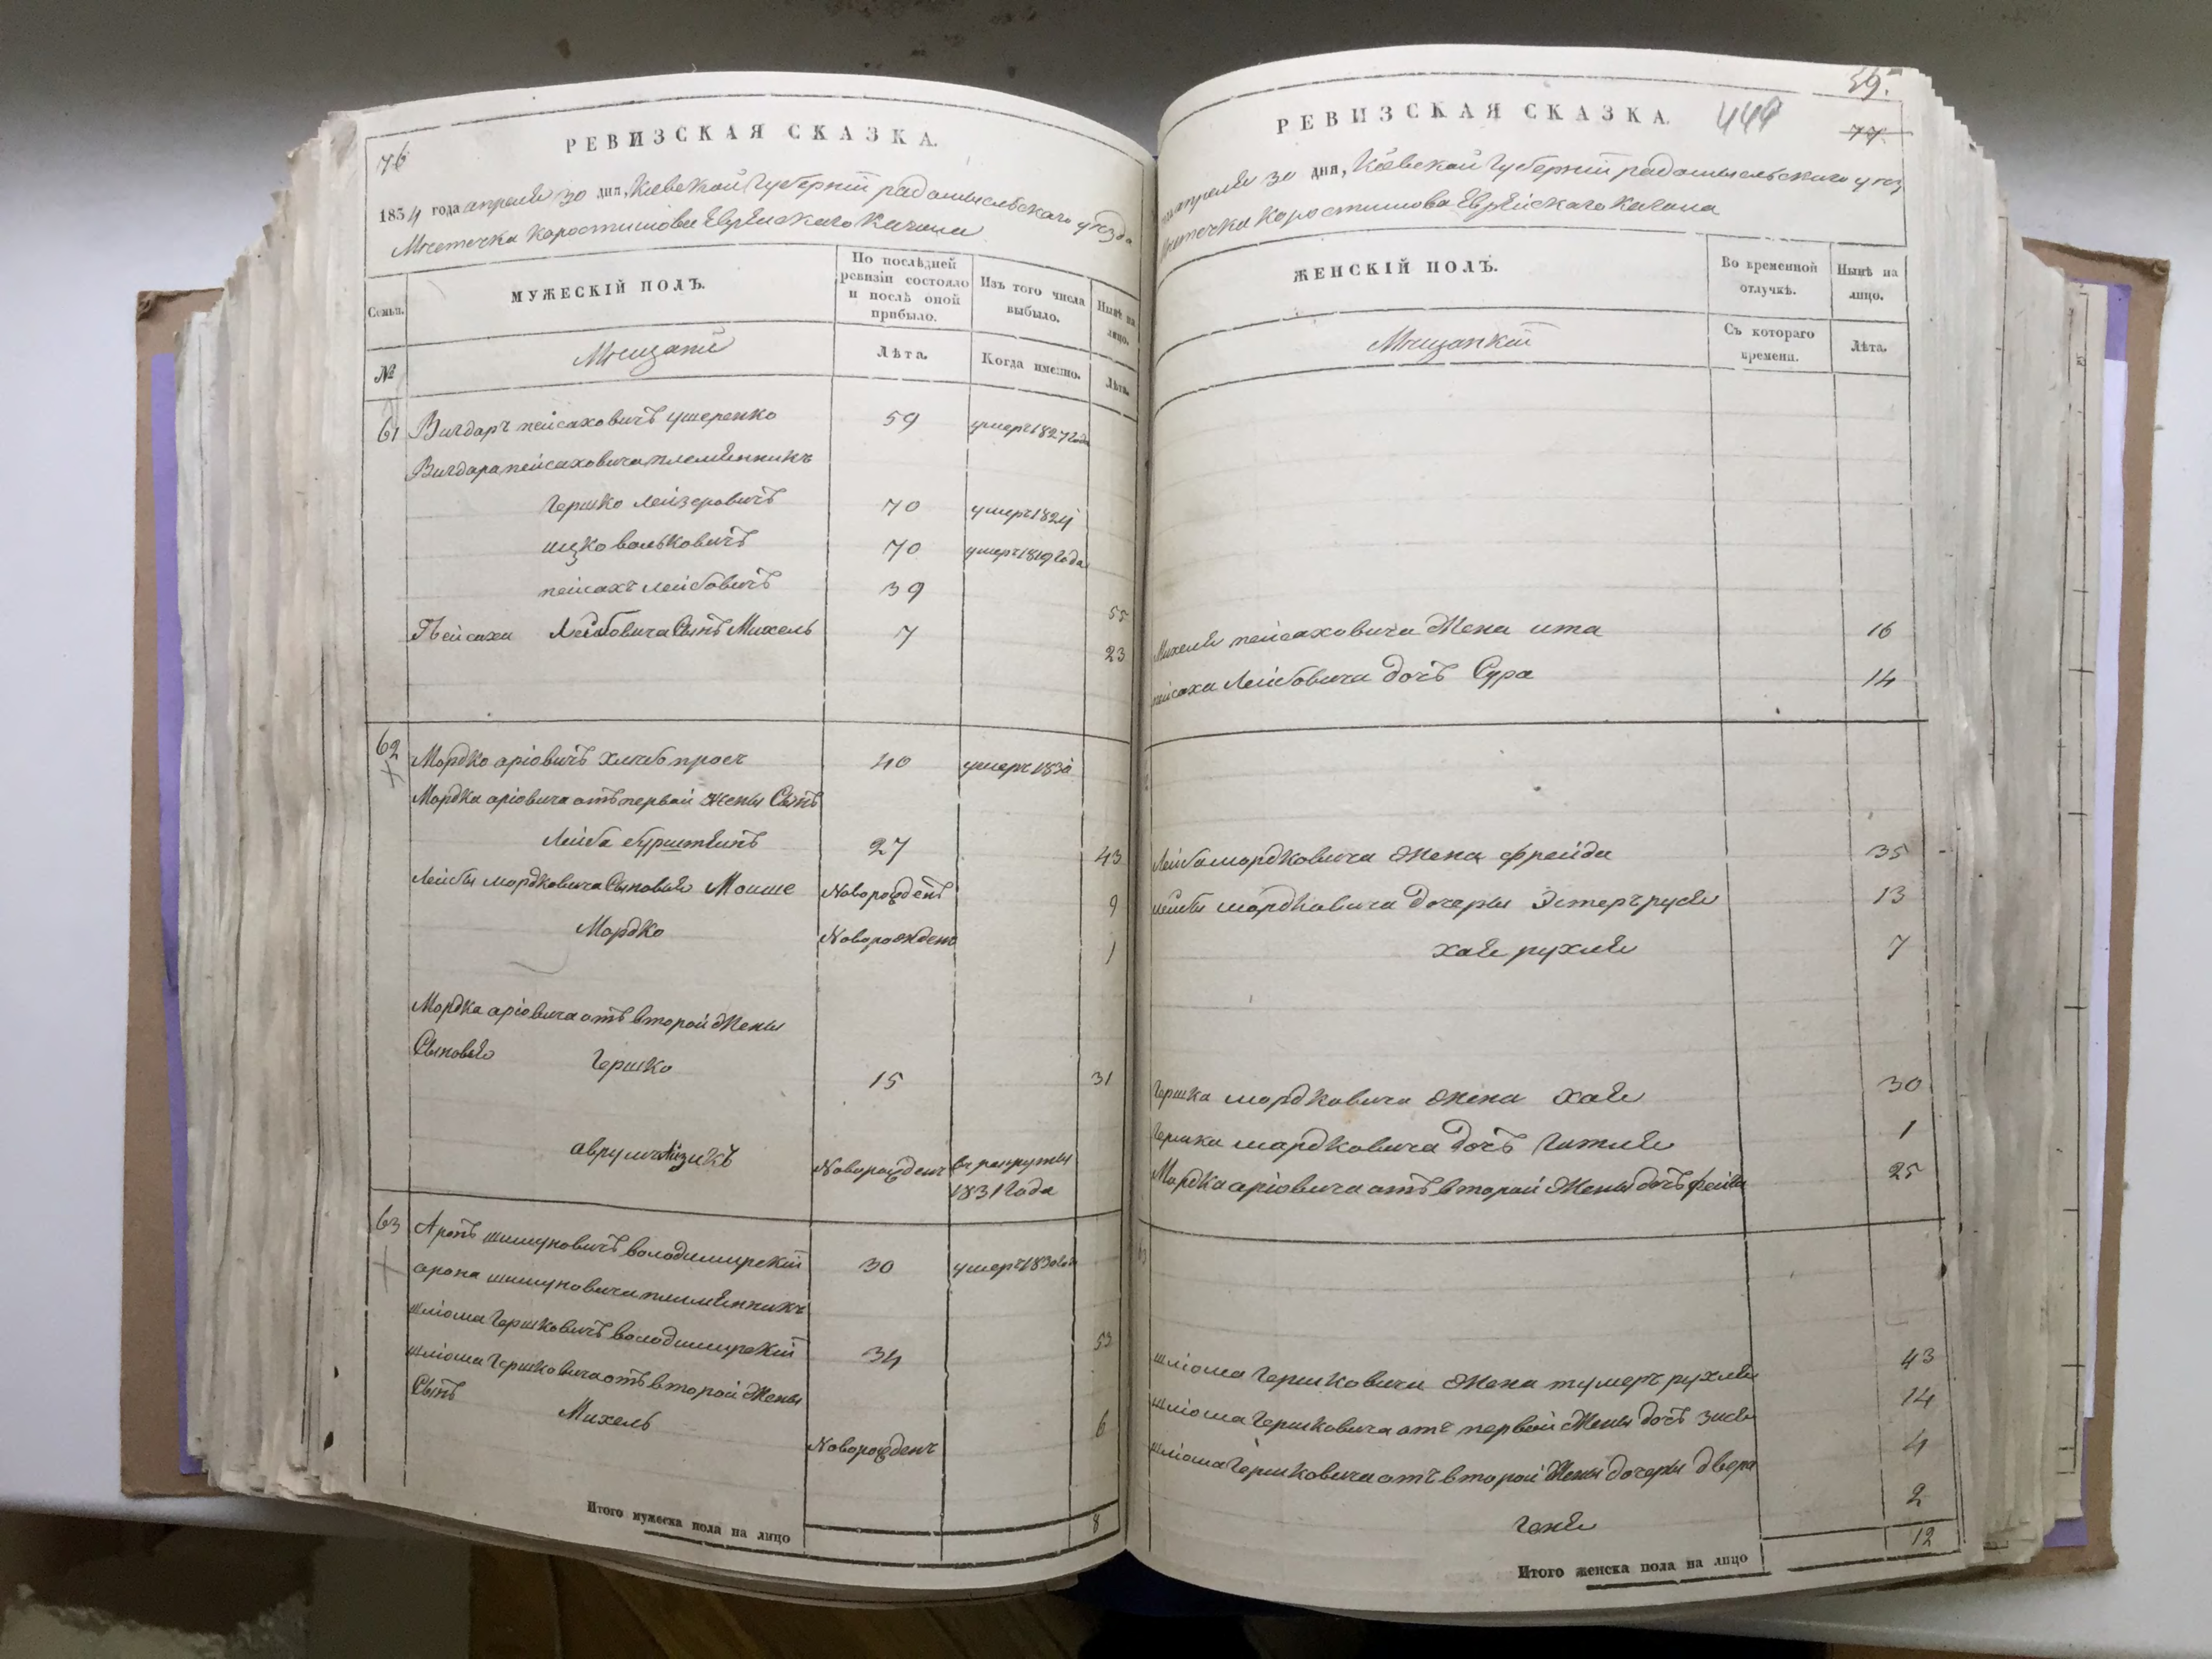 76
РЕВИЗСКАЯ СКАЗКА.
1834 года апреля 30 дня, Кіевской Губерніи радомысльского уезда
Местечка Коростишова Еврейскаго Кагала
Семьи.
МУЖЕСКІЙ ПОЛЪ.
По послѣдней ревизіи состояло и послѣ оной прибыло.
Изъ того числа выбыло.
Нынѣ на лицо.
№
Мещане
Лѣта.
Когда именно.
Лѣта.
61 Вигдоръ пейсаховичъ ушеренко 59 умеръ 1827 Года
Вигдора пейсаховича племенникъ
Гершко Лейзеровичъ 70 умеръ 1824
ицко вольковичъ 70 умеръ 1819 Года
пейсахъ Лейбовичъ 39 55
Пейсаха Лейбовича Сынъ Михель 7 23
62 Мордко аріовичъ 40 умеръ 1830
Мордка аріовича отъ первой жены Сынъ
Лейба 27 43
Лейбы мордковича Сыновья Мошше Новорожденъ 9
Мордко Новорожденъ 1
Мордка аріовича отъ второй Жены
Сыновья Гершко 15 31
аврумъ Айзикъ Новорожденъ въ рекруты
1831 Года
63 Аронъ шимуновичъ володимирскій 30 умеръ 1830
арона шимуновича племенникъ
шліома Гершковичъ володимирскій 34 53
шліома Гершковича отъ второй Жены
Сынъ Михель Новорожденъ 6
Итого мужеска пола на лицо 8
59.
РЕВИЗСКАЯ СКАЗКА.
77
апреля 30 дня, Кіевской Губерніи радомысльского уез
Местечка Коростишова Еврейскаго Кагала
ЖЕНСКІЙ ПОЛЪ.
Во временной отлучкѣ.
Нынѣ на лицо.
Мещанкіи
Съ котораго времени.
Лѣта.
Михеля пейсаховича Жена ита 16
пейсаха Лейбовича дочъ Сура 14
Лейба мордковича Жена фрейда 35
Лейбы мордковича дочеры Эстеръ руся 13
хая рухля 7
Гершка мордковича Жена хая 30
Гершка мордковича дочъ Гитля 1
Мордка аріовича отъ второй Жены дочъ 25
шліома Гершковича Жена рухля 43
шліома Гершковича отъ первой Жены дочъ 14
шліома Гершковича отъ второй Жены дочеры двера 4
Геня 2
Итого женска пола на лицо 12